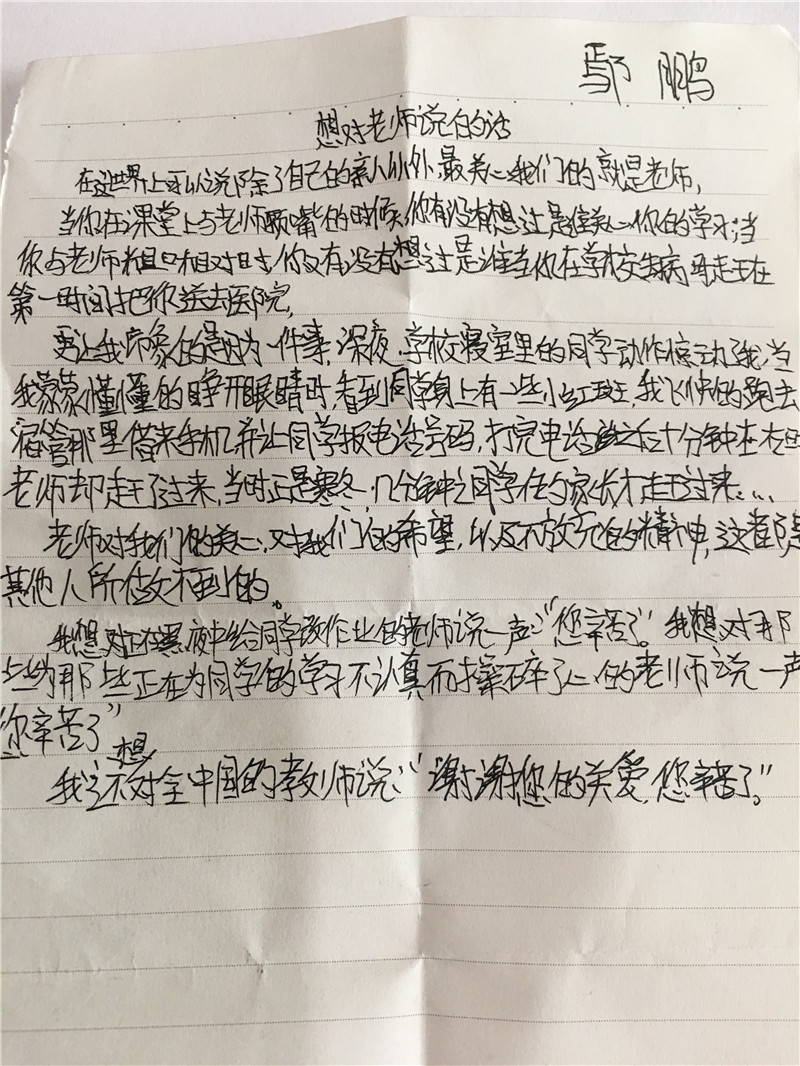 鄢 鹏
想对老师说的话
在这世界上可以说除了自己的亲人以外,最关心我们的就是老师,
当你在课堂上与老师顶嘴的时候,你有没有想过是谁关心你的学习;当
你与老师粗口相对时,你又有没有想过是谁当你在学校生病时走在
第一时间把你送去医院,
更让我印象的是因为一件事,深夜,学校寝室里的同学动作惊动了我,当
我蒙蒙懂懂的睁开眼睛时,看到同学身上有一些小红斑,我飞快的跑去
宿管那里借来手机,并让同学报电话号码,打完电话之后十分钟在左右
老师却走了过来,当时正是寒冬,几分钟之同学的家长才走了过来....
老师对我们的关心,对我们的希望,以及不放弃的精神,这都是
其他人所做不到的。
我想对正在黑夜中给同学改作业的老师说一声:“您辛苦了”。我想对那
些为那些正在为同学的学习不认真而操碎了心的老师说一声
“您辛苦了”
我还想对全中国的教师说:“谢谢您的关爱,您辛苦了”。